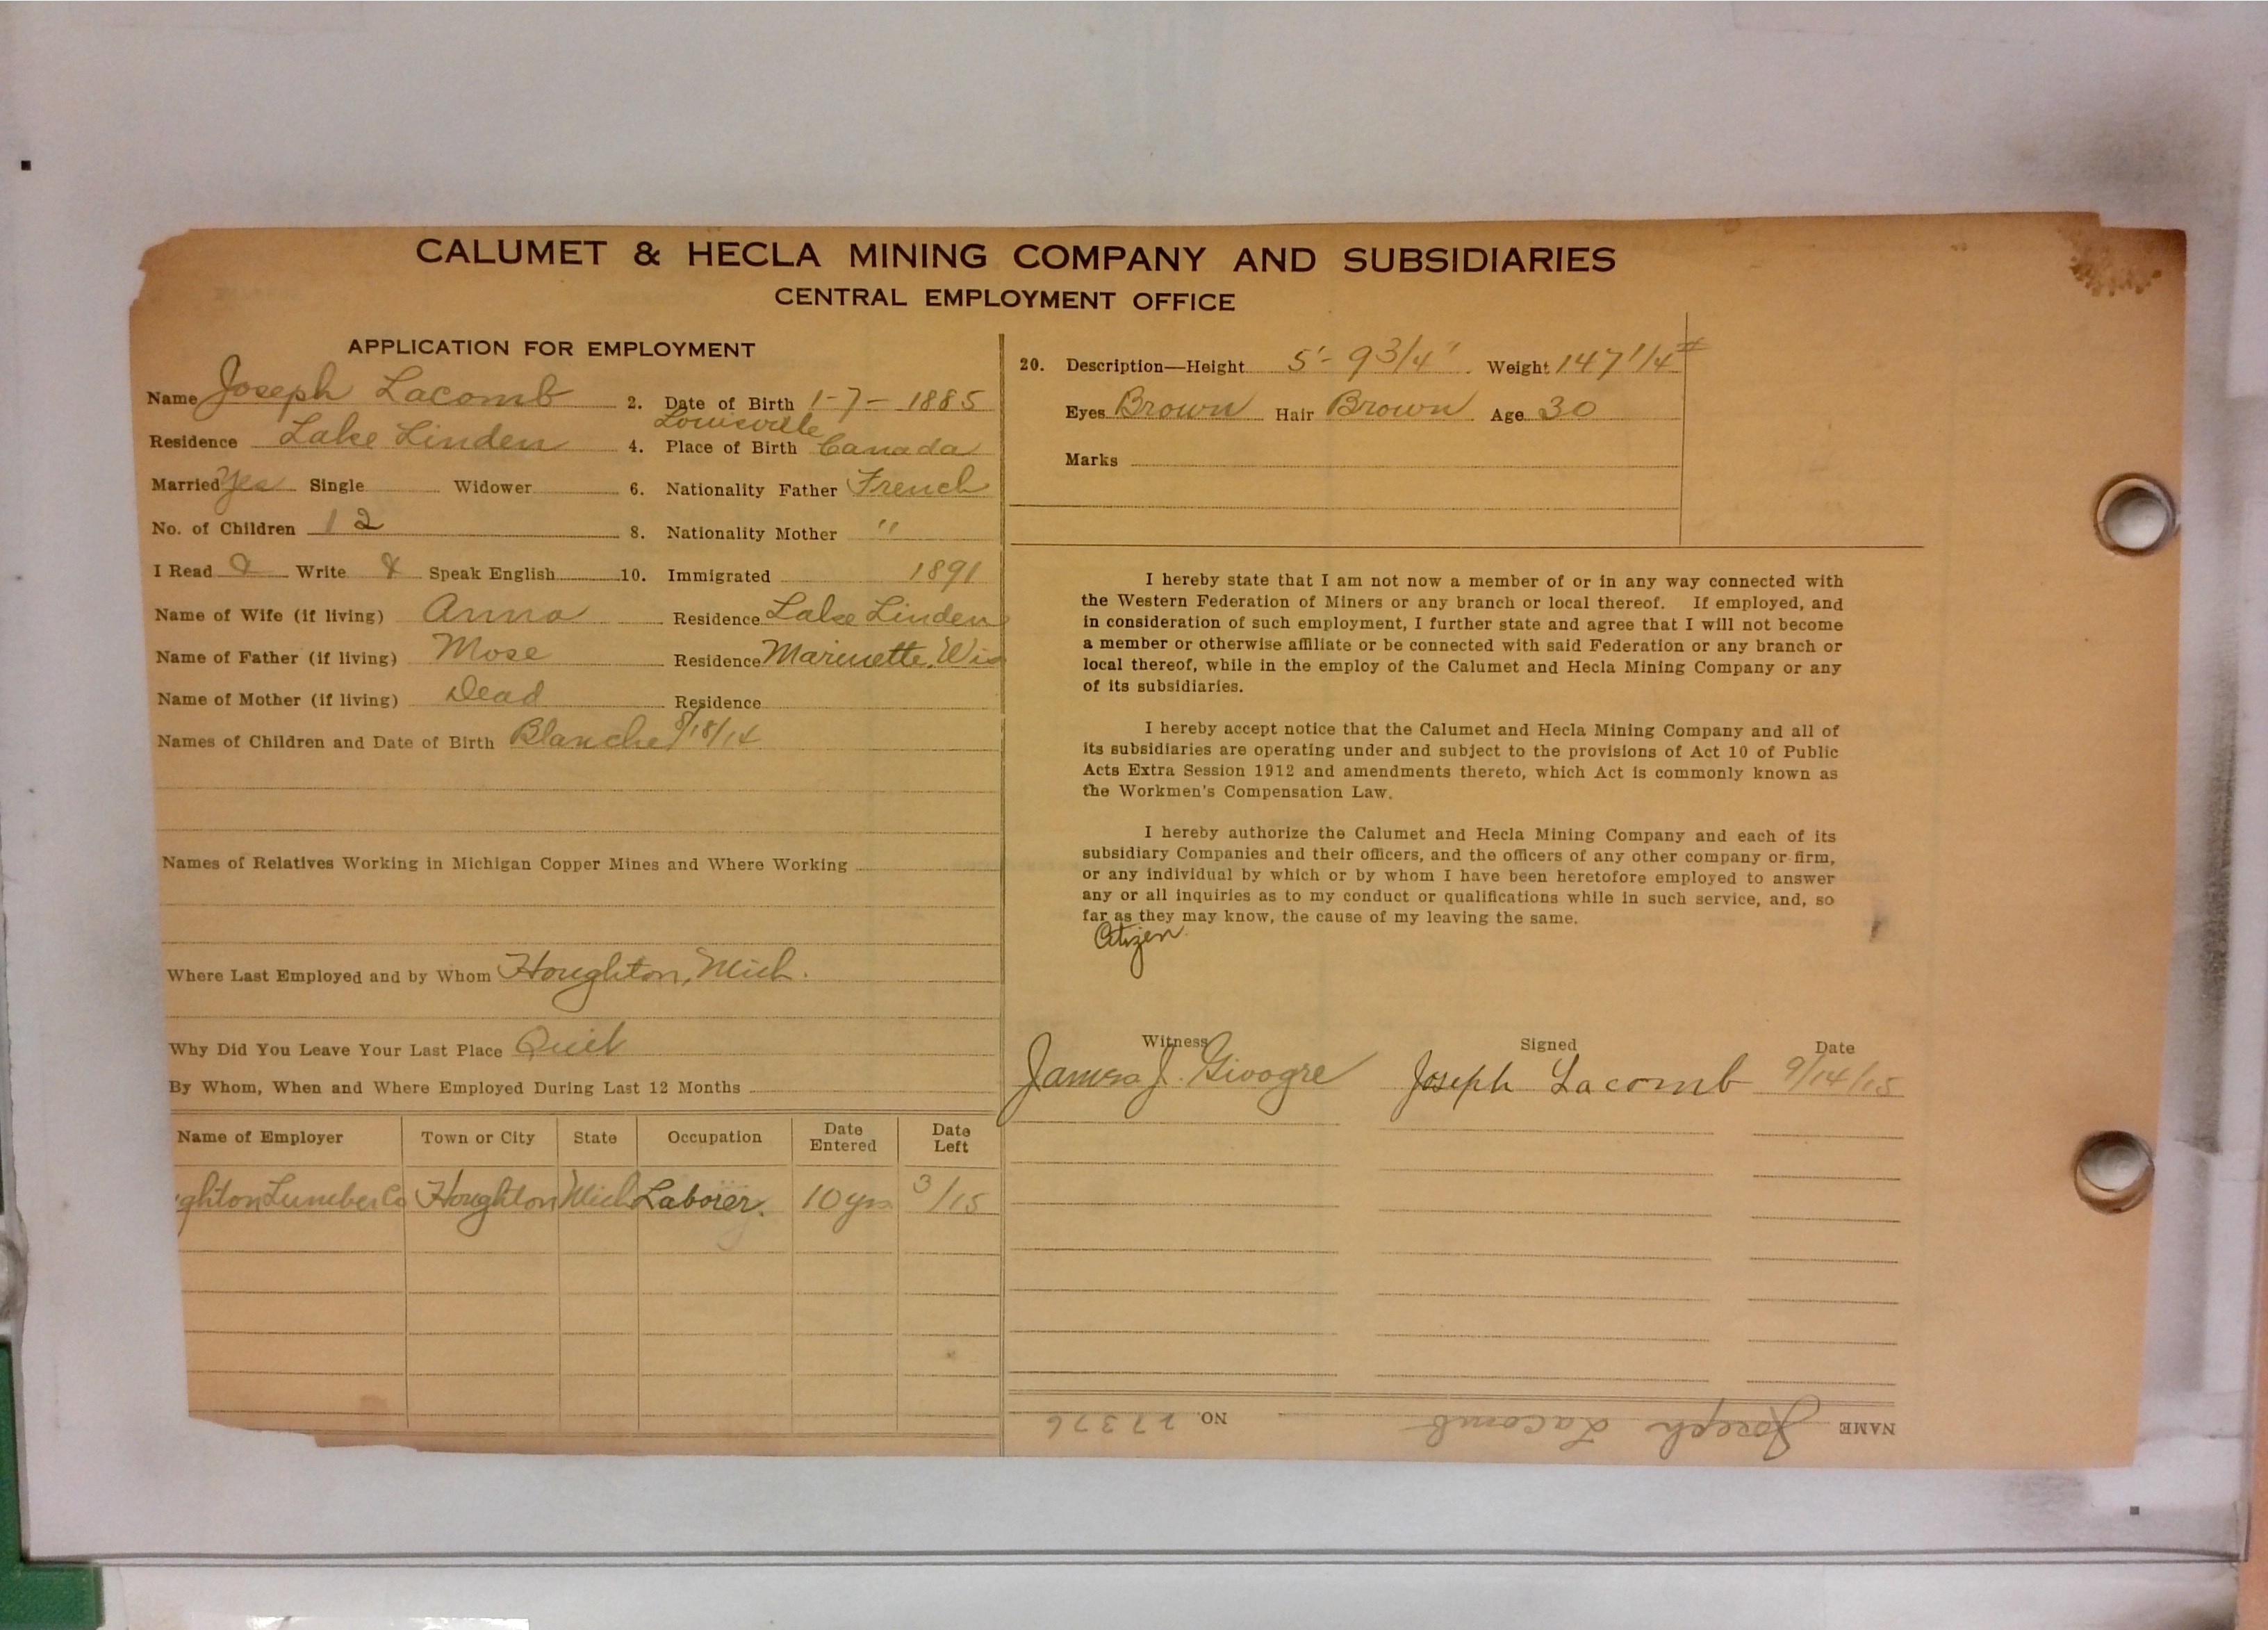 CALUMET & HECLA MINING COMPANY AND SUBSIDIARIES
CENTRAL EMPLOYMENT OFFICE
APPLICATION FOR EMPLOYMENT
Name Joseph Lacomb 2. Date of Birth 1-7-1885
Residence Lake Linden 4. Place of Birth Louisville Canada
Married Yes Single Widower 6. Nationality Father French
No. of Children 1 2 8. Nationality Mother "
I Read Write Speak English 10. Immigrated 1891
Name of Wife (if living) Anna Residence Lake Linden
Name of Father (if living) Mose Residence Marinette, Wis
Name of Mother (if living) Dead Residence
Names of Children and Date of Birth Blanche 8/18/14
Names of Relatives Working in Michigan Copper Mines and Where Working
Where Last Employed and by Whom Houghton, Mich.
Why Did You Leave Your Last Place Quit
By Whom, When and Where Employed During Last 12 Months
Name of Employer Town or City State Occupation Date Entered Date Left
ghton Lumber Co Houghton Mich Laborer. 10 yrs 3/15
20. Description—Height 5'-9 3/4" Weight 147 1/4 #
Eyes Brown Hair Brown Age 30
Marks
I hereby state that I am not now a member of or in any way connected with
the Western Federation of Miners or any branch or local thereof. If employed, and
in consideration of such employment, I further state and agree that I will not become
a member or otherwise affiliate or be connected with said Federation or any branch or
local thereof, while in the employ of the Calumet and Hecla Mining Company or any
of its subsidiaries.
I hereby accept notice that the Calumet and Hecla Mining Company and all of
its subsidiaries are operating under and subject to the provisions of Act 10 of Public
Acts Extra Session 1912 and amendments thereto, which Act is commonly known as
the Workmen's Compensation Law.
I hereby authorize the Calumet and Hecla Mining Company and each of its
subsidiary Companies and their officers, and the officers of any other company or firm,
or any individual by which or by whom I have been heretofore employed to answer
any or all inquiries as to my conduct or qualifications while in such service, and, so
far as they may know, the cause of my leaving the same.
Citizen
Witness Signed Date
James J. Joseph Lacomb 9/14/15
NAME Joseph Lacomb NO. 27376